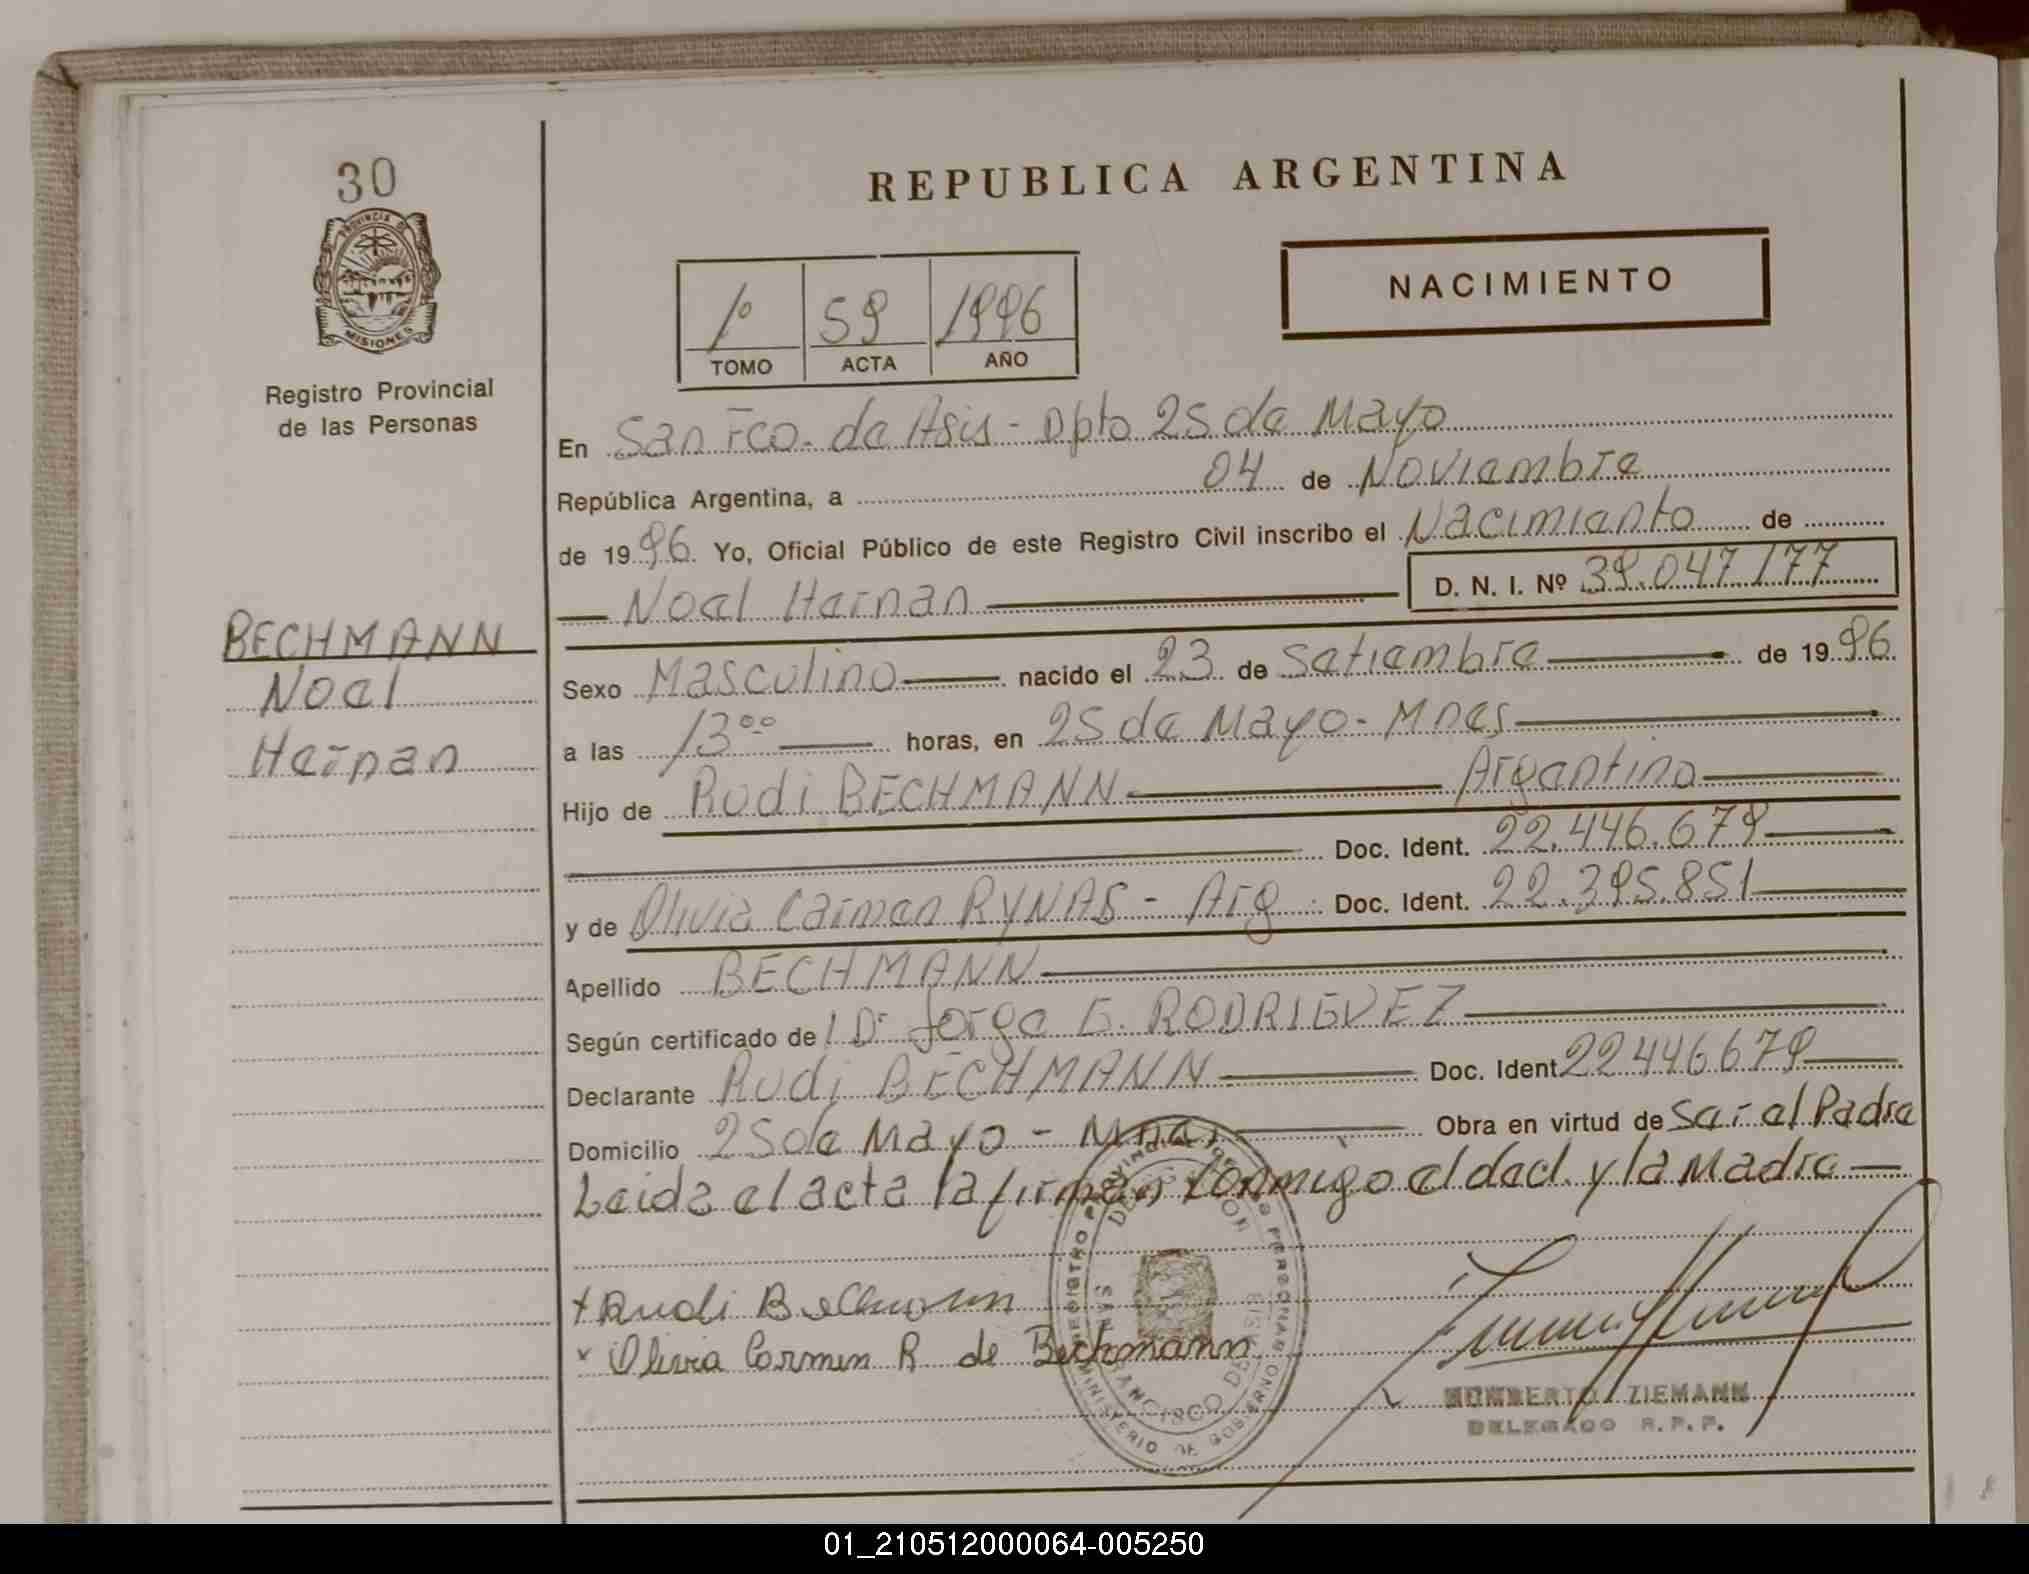 30
PROVINCIA DE
MISIONES
Registro Provincial
de las Personas
BECHMANN
Noel
Hernan
REPUBLICA ARGENTINA
NACIMIENTO
1º 59 1996
TOMO ACTA AÑO
En San Fco. de Asis - Dpto 25 de Mayo
República Argentina, a 04 de Noviembre
de 1996. Yo, Oficial Público de este Registro Civil inscribo el Nacimiento de
Noel Hernan D. N. I. Nº 39.047.177
Sexo Masculino nacido el 23 de Setiembre de 1996
a las 13⁰⁰ horas, en 25 de Mayo - Mnes
Hijo de Rudi BECHMANN Argentino
Doc. Ident. 22.446.679
y de Olivia Carmen RYNAS - Arg Doc. Ident. 22.395.851
Apellido BECHMANN
Según certificado de Dr Jorge E. RODRIGUEZ
Declarante Rudi BECHMANN Doc. Ident 22446679
Domicilio 25 de Mayo - Mnes Obra en virtud de Ser el Padre
Leida el acta la firman conmigo el decl. y la Madre
+ Rudi Bechmann
x Olivia Carmen R de Bechmann
HUMBERTO ZIEMANN
DELEGADO R.P.P.
FRANCISCO DE ASIS
MINISTERIO DE GOBIERNO
01_210512000064-005250